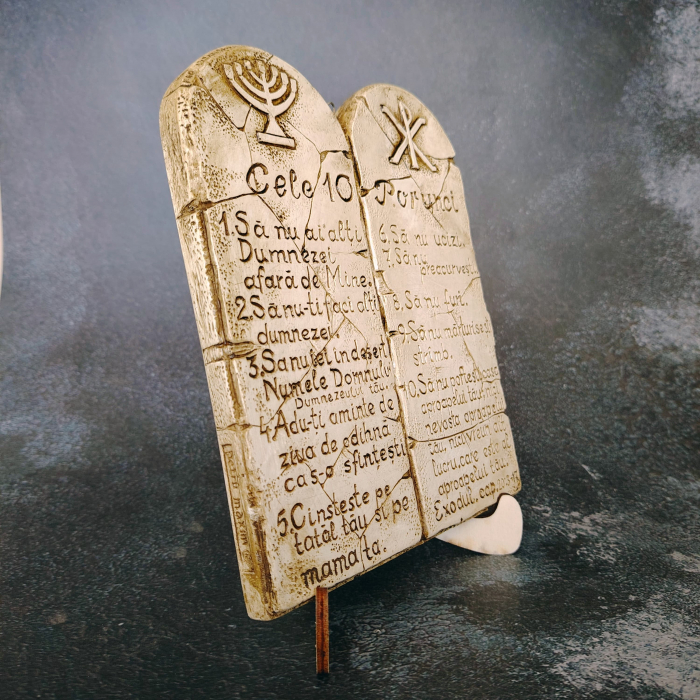 Cele 10 Porunci
1. Să nu ai alți
Dumnezei
afară de Mine.
2. Să nu-ți faci alți
dumnezei
3. Să nu iei în deșert
Numele Domnului
Dumnezeului tău.
4. Adu-ți aminte de
ziua de odihnă
ca s-o sfințești
5. Cinstește pe
tatăl tău și pe
mama ta.
6. Să nu ucizi.
7. Să nu
preacurvești
8. Să nu furi.
9. Să nu mărturisești
strîmb.
10. Să nu poftești casa
aproapelui tău,
nevasta aproapelui
tău, nici vreun alt
lucru, care este al
aproapelui tău.
Exodul, cap.